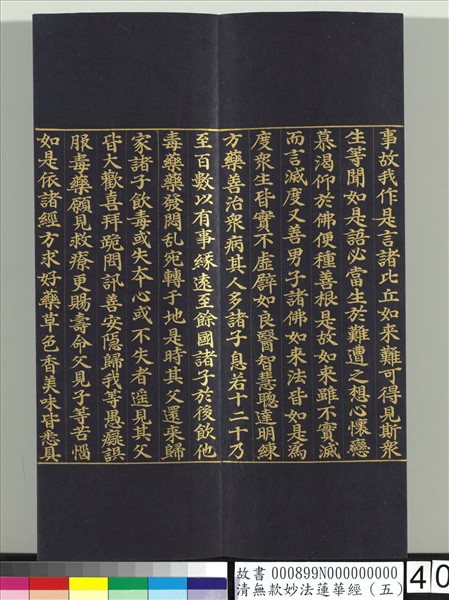 事故我作是言諸比丘如來難可得見斯衆
生等聞如是語必當生於難遭之想心懷戀
慕渴仰於佛便種善根是故如來雖不實滅
而言滅度又善男子諸佛如來法皆如是為
度衆生皆實不虛譬如良醫智慧聰達明練
方藥善治衆病其人多諸子息若十二十乃
至百數以有事緣遠至餘國諸子於後飲他
毒藥藥發悶乱宛轉于地是時其父還來歸
家諸子飲毒或失本心或不失者遥見其父
皆大歡喜拜跪問訊善安隱歸我等愚癡誤
服毒藥願見救療更賜壽命父見子等苦惱
如是依諸經方求好藥草色香美味皆悉具
故書 000899N000000000
清無款妙法蓮華經（五）
40